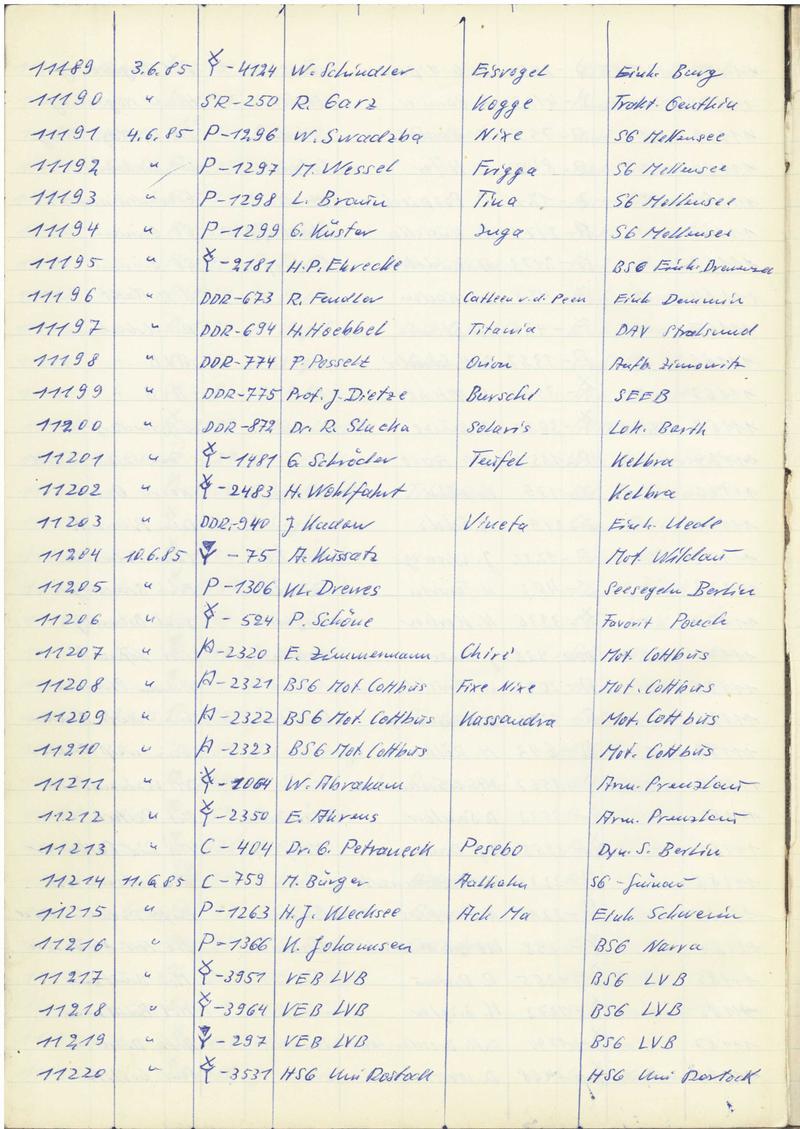 11189 3.6.85 -4124 W. Schindler Eisvogel Einh. Burg
11190 " SR-250 R. Garz Kogge Trakt. Genthin
11191 4.6.85 P-1296 W. Swadzba Nixe SG Mellensee
11192 " P-1297 M. Wessel Frigga SG Mellensee
11193 " P-1298 L. Braun Tina SG Mellensee
11194 " P-1299 G. Küster Inga SG Mellensee
11195 " -2181 H.P. Ehrecke BSG Einh.
11196 " DDR-673 R. Fendler v. d. Peen Einh Demmin
11197 " DDR-694 H. Hoebbel Titania DAV Stralsund
11198 " DDR-774 P. Posselt Orion Aufb. Zinnowitz
11199 " DDR-775 Prof. J. Dietze Burschi SEEB
11200 " DDR-872 Dr. R. Slucka Solaris Lok. Barth
11201 " -1481 G. Schröder Teufel Kelbra
11202 " -2483 H. Wohlfahrt Kelbra
11203 " DDR-940 J. Kadow Vineta Einh. Uede
11204 10.6.85 -75 A. Kussatz Mot. Wildau
11205 " P-1306 Kl. Drewes Seesegeln Berlin
11206 " -524 P. Schöne Favorit Pouch
11207 " A-2320 E. Zimmermann Chiri Mot. Cottbus
11208 " A-2321 BSG Mot. Cottbus Fixe Nixe Mot. Cottbus
11209 " A-2322 BSG Mot. Cottbus Kassandra Mot. Cottbus
11210 " A-2323 BSG Mot. Cottbus Mot. Cottbus
11211 " -1064 W. Abraham Arm. Prenzlau
11212 " -2350 E. Ahrens Arm. Prenzlau
11213 " C-404 Dr. G. Petraneck Pesebo Dyn. S. Berlin
11214 11.6.85 C-759 M. Bürger Aalkahn SG-Grünau
11215 " P-1263 H.J. Klechsee Ach Ma Einh. Schwerin
11216 " P-1366 K. Johannsen BSG Narva
11217 " -3951 VEB LVB BSG LVB
11218 " -3964 VEB LVB BSG LVB
11219 " -297 VEB LVB BSG LVB
11220 " -3531 HSG Uni Rostock HSG Uni Rostock